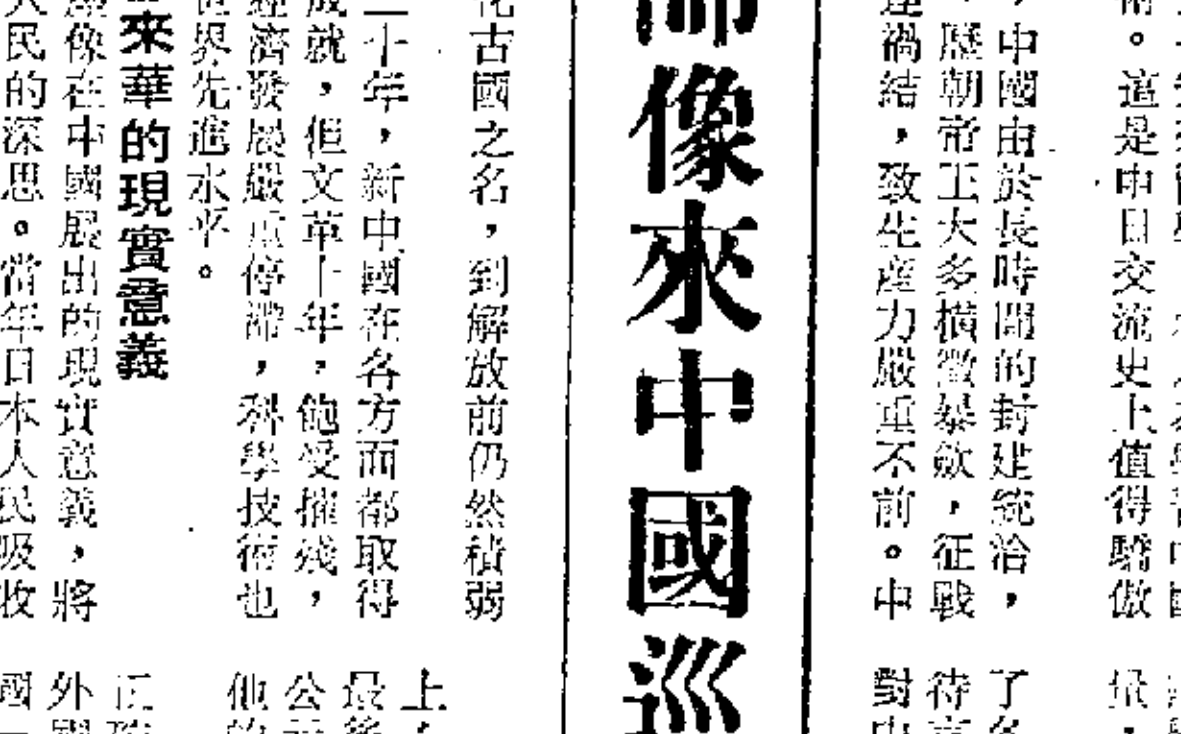 術。這是中日交流史上值得驕傲
，中國由於長時間的封建統治，
，歷朝帝王大多橫徵暴歛，征戰
連禍結，致生產力嚴重不前。中
了
待
對
師像來中國巡
化古國之名，到解放前仍然積弱
二十年，新中國在各方面都取得
成就，但文革十年，飽受摧殘，
經濟發展嚴重停滯，科學技術也
世界先進水平。
來華的現實意義
像在中國展出的現實意義，將
人民的深思。當年日本人民吸收
上
最後
公
他的
正確
外國
國